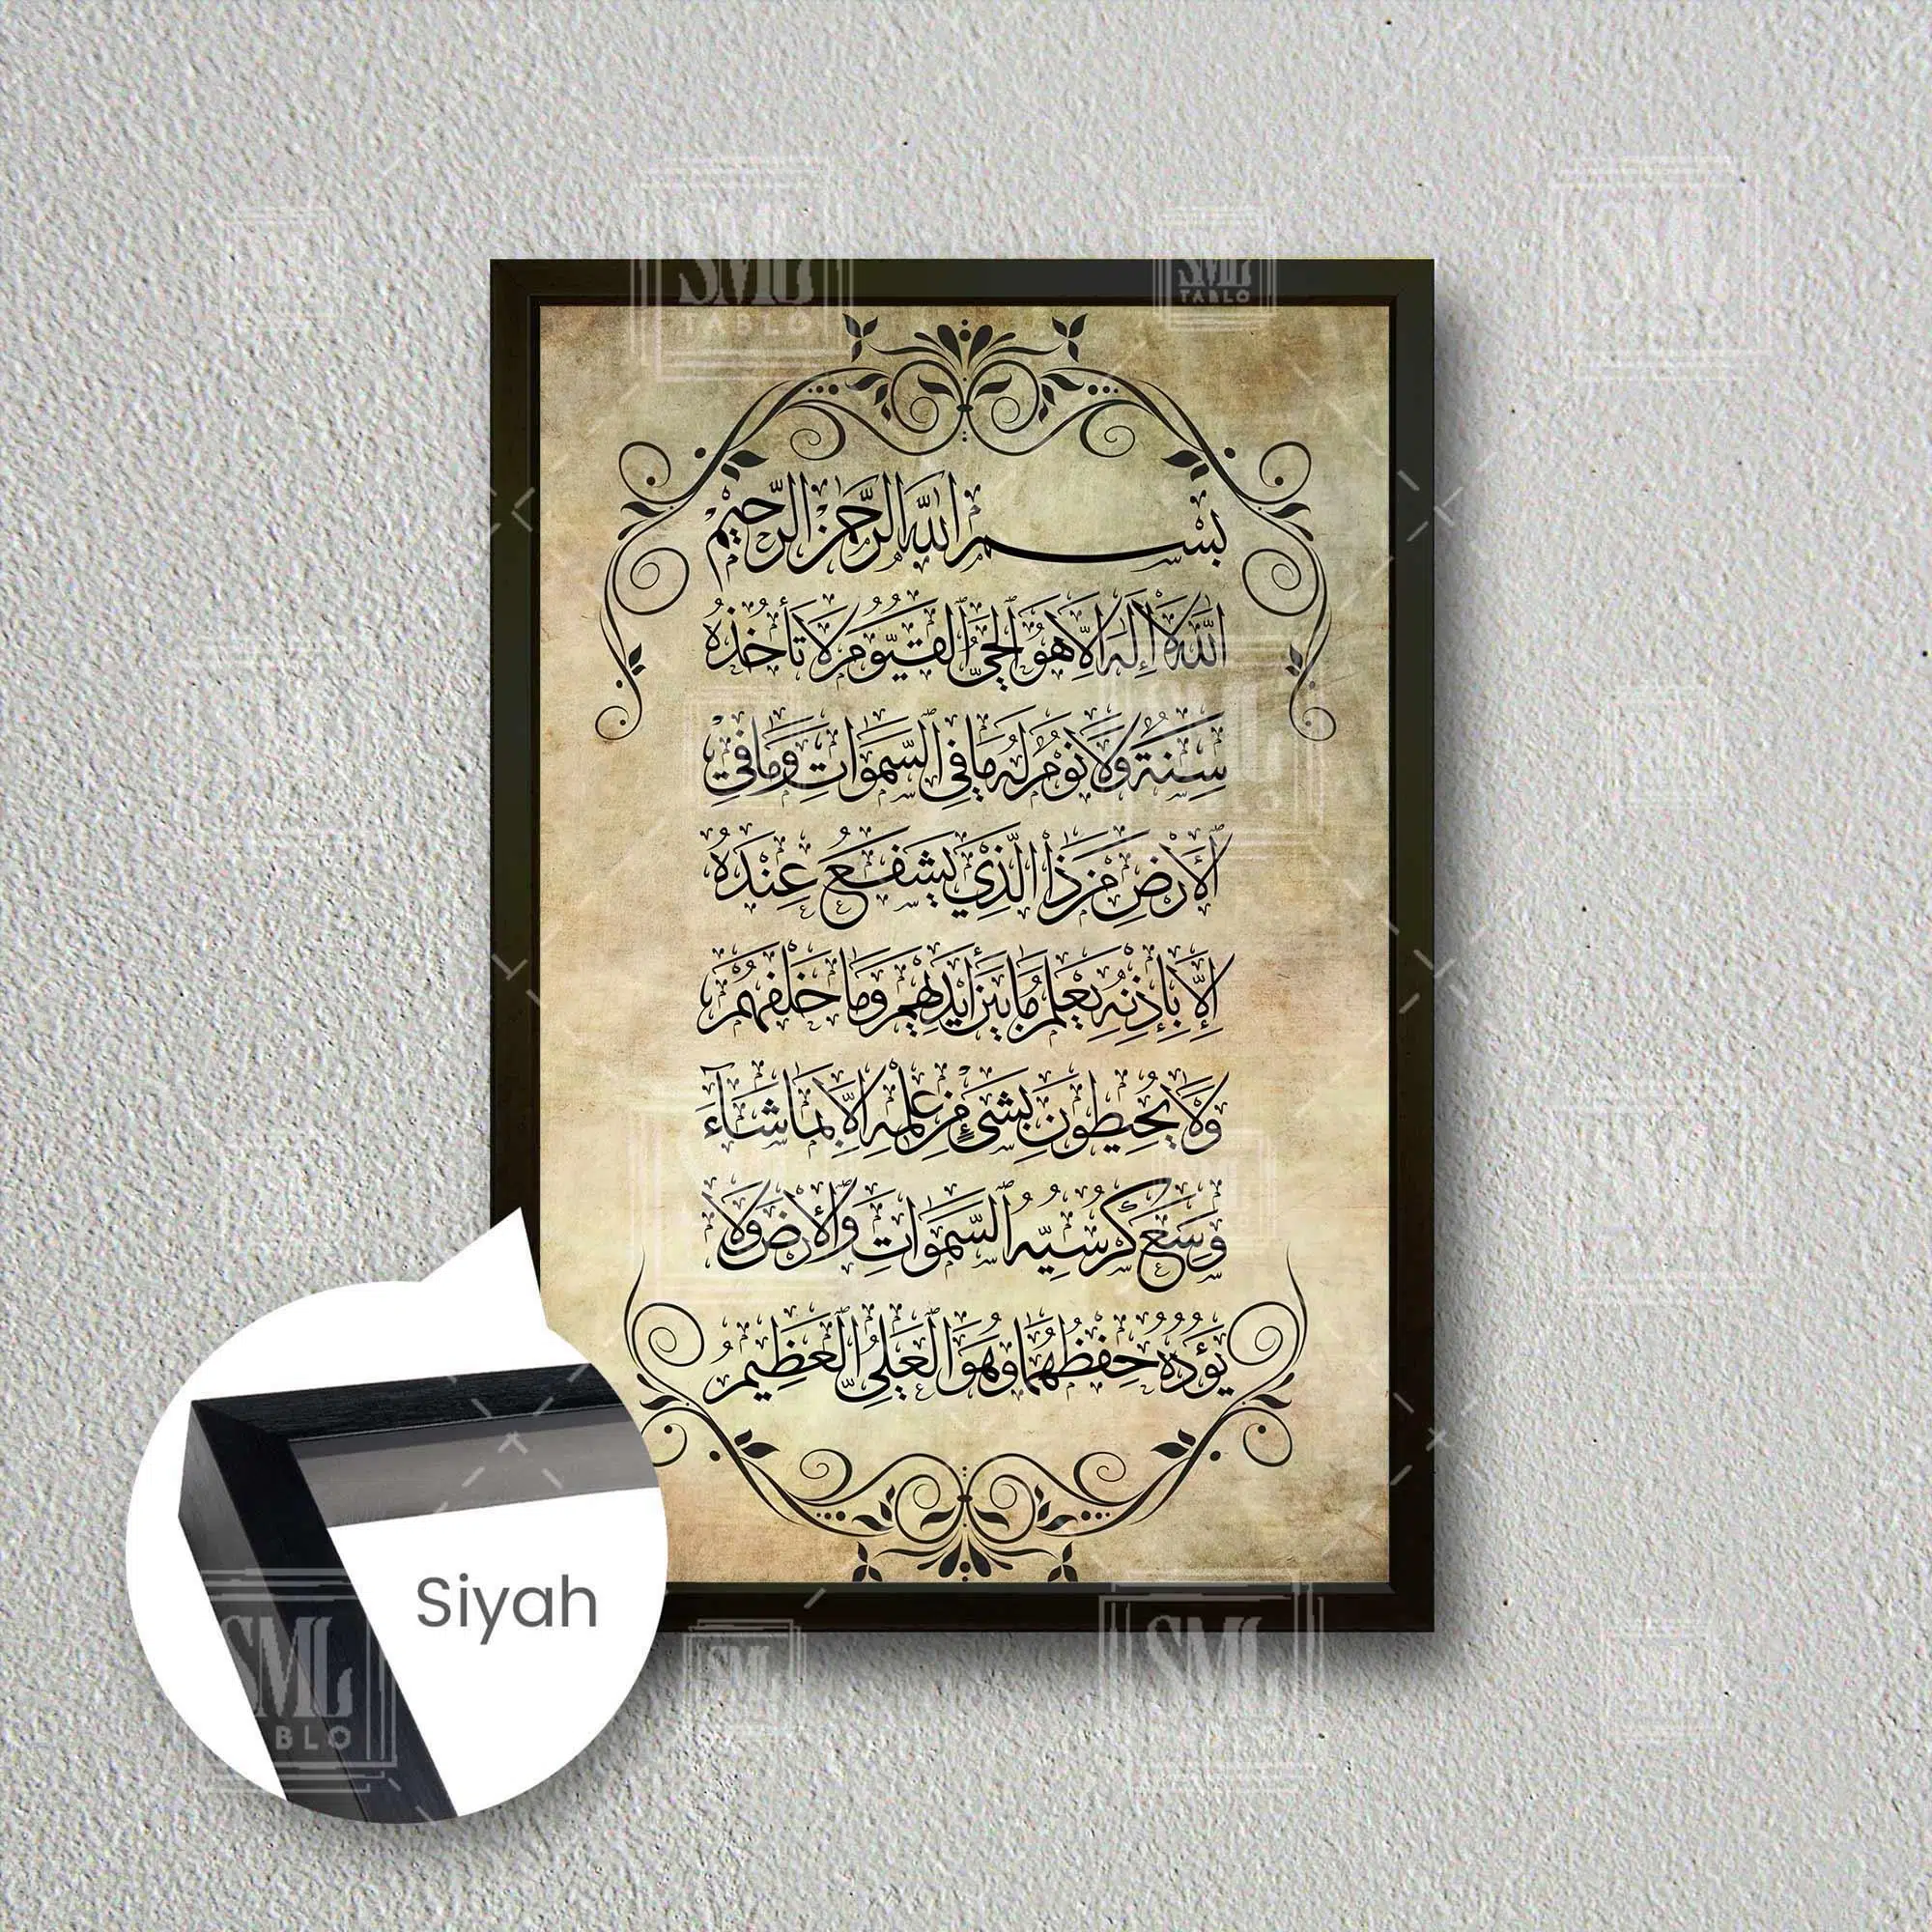 SML
TABLO
SML
TABLO
بسم الله الرحمن الرحيم
الله لا إله إلا هو الحي القيوم لا تأخذه
سنة ولا نوم له ما في السموات وما في
الأرض من ذا الذي يشفع عنده
إلا بإذنه يعلم ما بين أيديهم وما خلفهم
ولا يحيطون بشيء من علمه إلا بما شاء
وسع كرسيه السموات والأرض ولا
يؤده حفظهما وهو العلي العظيم
Siyah
SML
TABLO